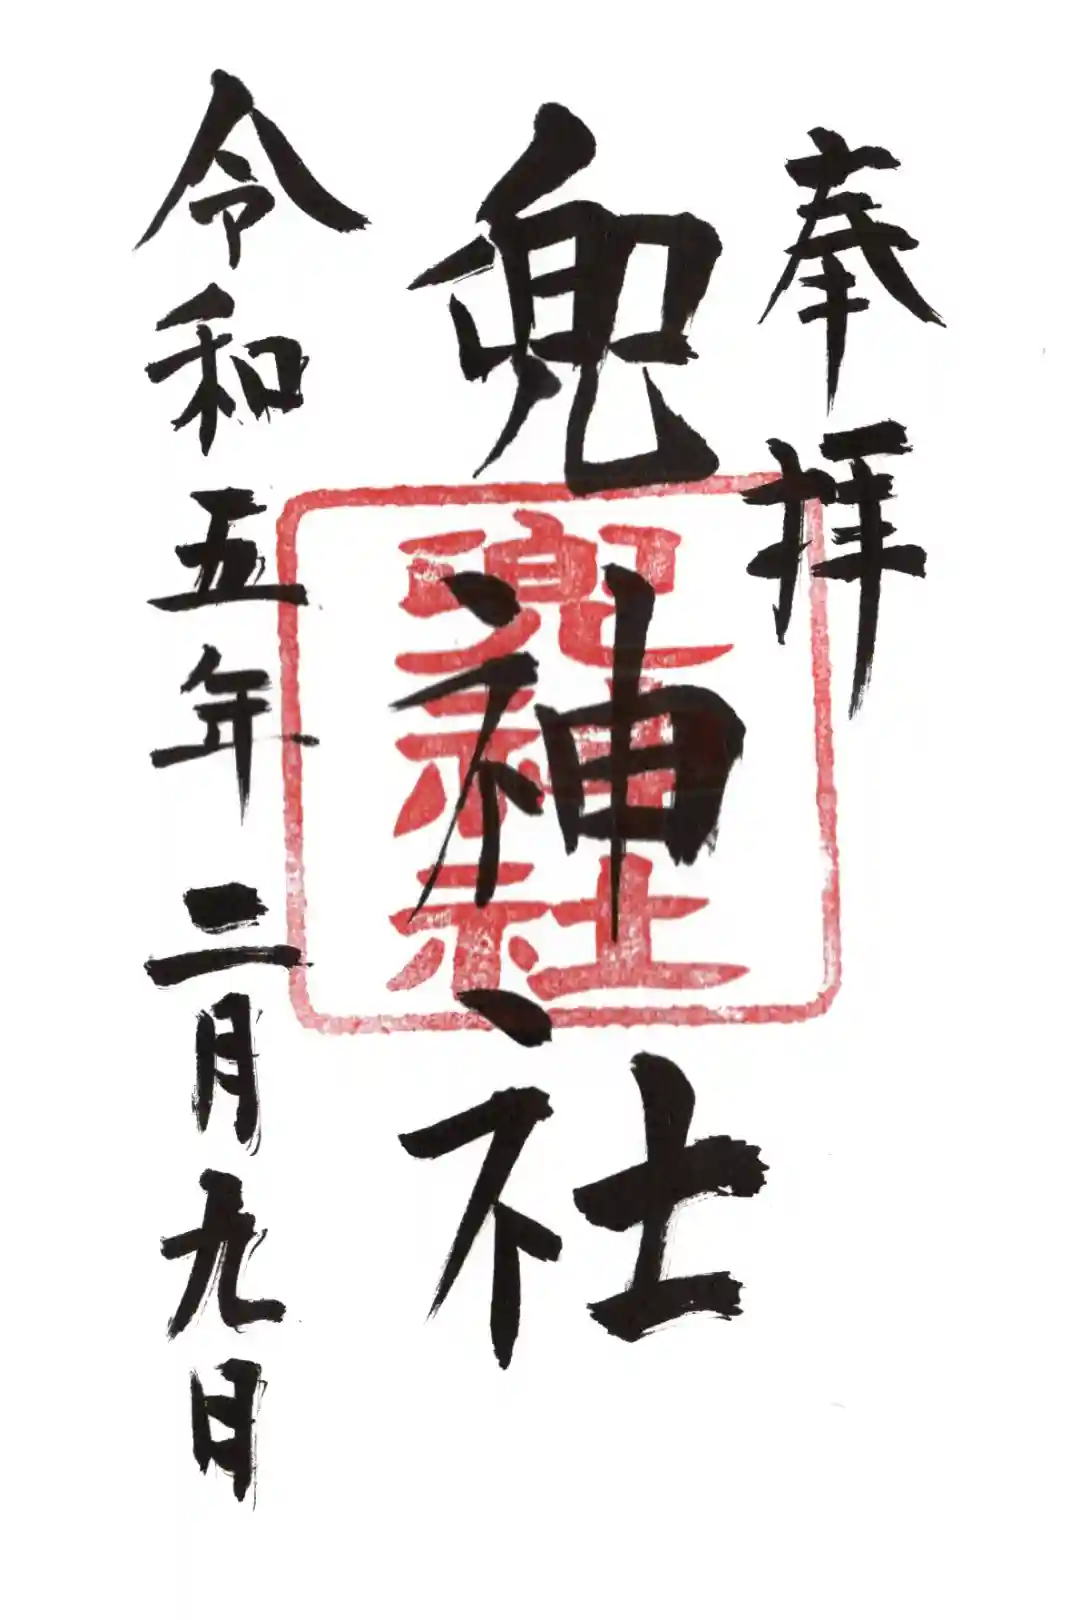 奉拝
兜神社
兜神社
令和五年二月九日